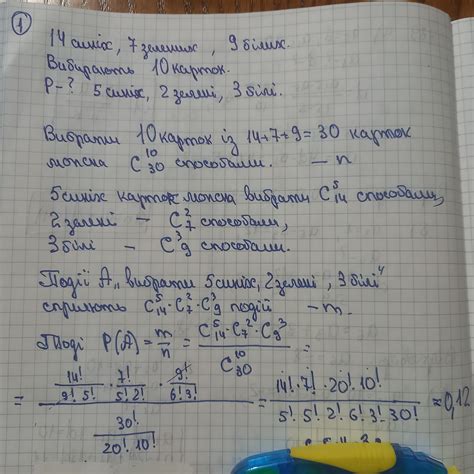 1
14 синіх, 7 зелених, 9 білих.
Вибирають 10 карток.
P-? 5 синіх, 2 зелені, 3 білі.
Вибрати 10 карток із 14+7+9=30 карток
можна C₃₀¹⁰ способами. — n
5 синіх карток можна вибрати C₁₄⁵ способами,
2 зелені — C₇² способами,
3 білі — C₉³ способами.
Події A „вибрати 5 синіх, 2 зелені, 3 білі"
сприяють C₁₄⁵·C₇²·C₉³ подій — m.
Тоді P(A)=m/n=(C₁₄⁵·C₇²·C₉³)/C₃₀¹⁰=
=(14!/(9!·5!)·7!/(5!2!)·9!/(6!3!))/(30!/(20!10!))=(14!·7!·20!·10!)/(5!·5!·2!·6!·3!·30!)≈0,12